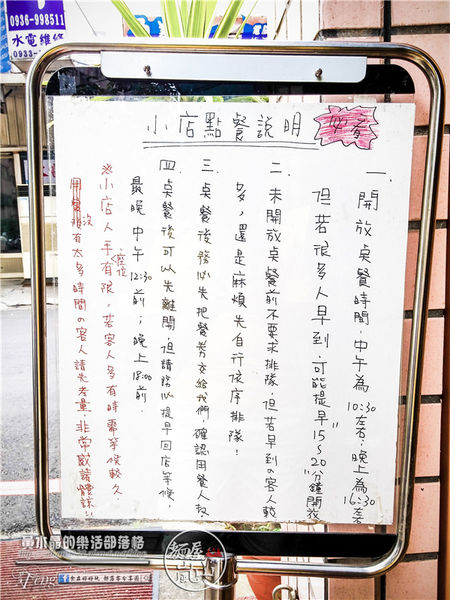 0936-998511
水電維修
0933-
小店點餐說明
必看
一. 開放桌餐時間,中午為10:30左右,晚上為16:30左右
但若很多人早到,可能提早"15~20"分鐘開放
二. 未開放桌餐前不要求排隊,但若早到の客人較
多,還是麻煩先自行依序排隊!
三. 桌餐後務必先把餐劵交給我們,確認用餐人數
四. 桌餐後可以先離開,但請務必提早回店等候,
最晚中午12:30前;晚上18:00前.
※小店人手有限,座位 若客人多有時需等候較久.
用餐前沒有太多時間の客人請先考慮,非常感謝體諒
水晶的樂活部落格